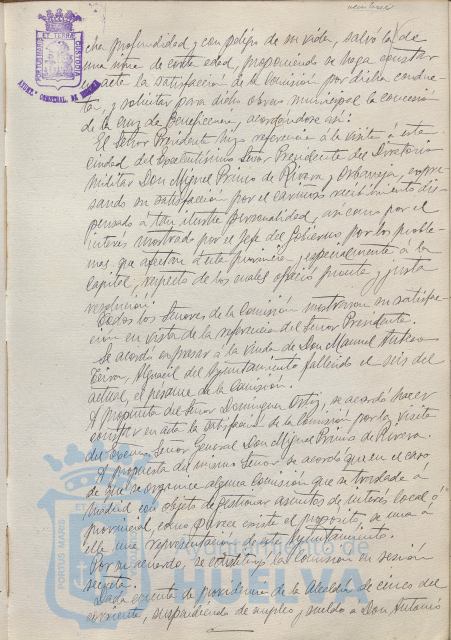 cha profundidad y con peligro de su vida, salvó la de
una niña de corta edad, proponiendo se haga constar
en acta la satisfacción de la Comisión por dicha conduc-
ta, y solicitar para dicho obrero municipal la concesión
de la cruz de Beneficencia, acordándose así.
El Señor Presidente hizo referencia a la visita a esta
ciudad del Excelentísimo Señor Presidente del Directorio
Militar Don Miguel Primo de Rivera y Orbaneja, expre-
sando su satisfacción por el cariñoso recibimiento dis-
pensado à tan ilustre personalidad, así como por el
interés mostrado por el Jefe del Gobierno por los proble-
mas que afectan a esta provincia y especialmente à la
capital, respecto de los cuales ofreció pronta y justa
resolución.
Todos los Señores de la Comisión mostraron su satisfac-
ción en vista de la referencia del Señor Presidente.
Se acordó expresar à la viuda de Don Manuel
Alguacil del Ayuntamiento fallecido el seis del
actual, el pésame de la Comisión.
A propuesta del Señor Dominguez Ortiz, se acordó hacer
constar en acta la satisfacción de la Comisión por la visita
del Excmo. Señor General Don Miguel Primo de Rivera.
A propuesta del mismo Señor se acordó que en el caso
de que se organice alguna Comisión que se traslade à
Madrid con objeto de gestionar asuntos de interés local ò
provincial, como parece existe el propósito, se una à
ella una representación de este Ayuntamiento.
Por su acuerdo, se constituyó la Comisión en sesión
secreta.
Dada cuenta de providencia de la Alcaldía de cinco del
corriente, suspendiendo de empleo y sueldo a Don Antonio
PORTUS MARIS
Ayuntamiento de
HUELVA